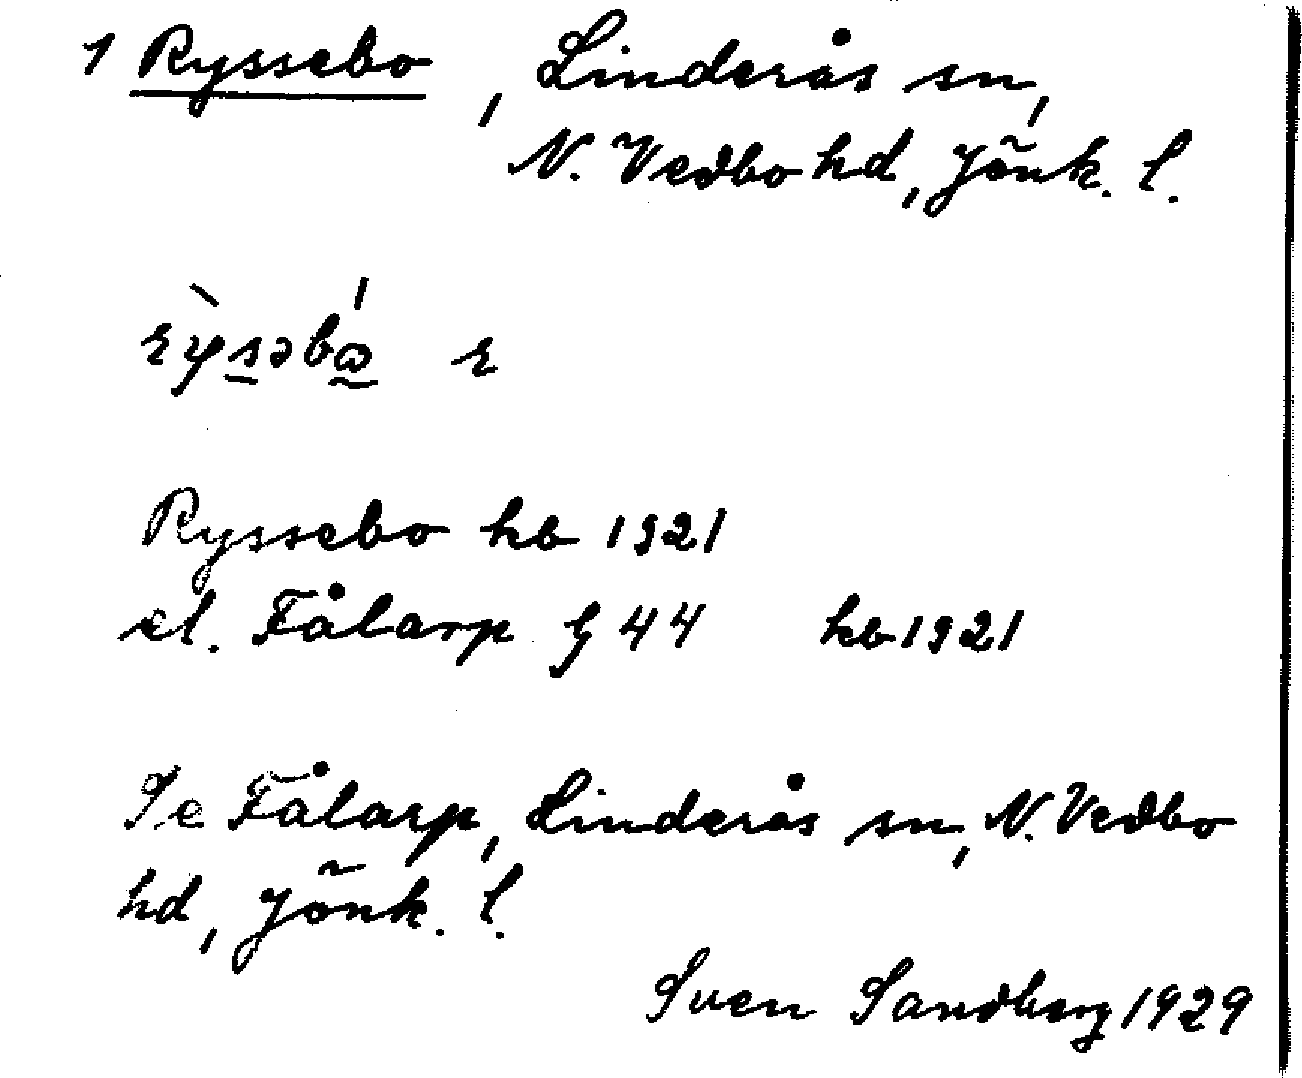 1 Ryssebo, Linderås sn,
N. Vedbo hd, Jönk. l.
Ryssebo hb 1921
el. Fålarp G 44 hb 1921
Se Fålarp, Linderås sn, N. Vedbo
hd, Jönk. l.
Sven Sandberg 1929